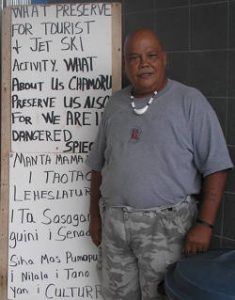 WHAT PRESERVE
FOR TOURIST
& JET SKI
ACTIVITY. WHAT
ABOUT US CHAMORU
PRESERVE US ALSO
FOR WE ARE
DANGERED
SPIEC
MANTA MAMA
I TAOTAO
LEHESLATUR
I Ta Sasagan
guini i Senad
Siha Mas Pumapu
i Nilala i Tano
Yan i CULTURA